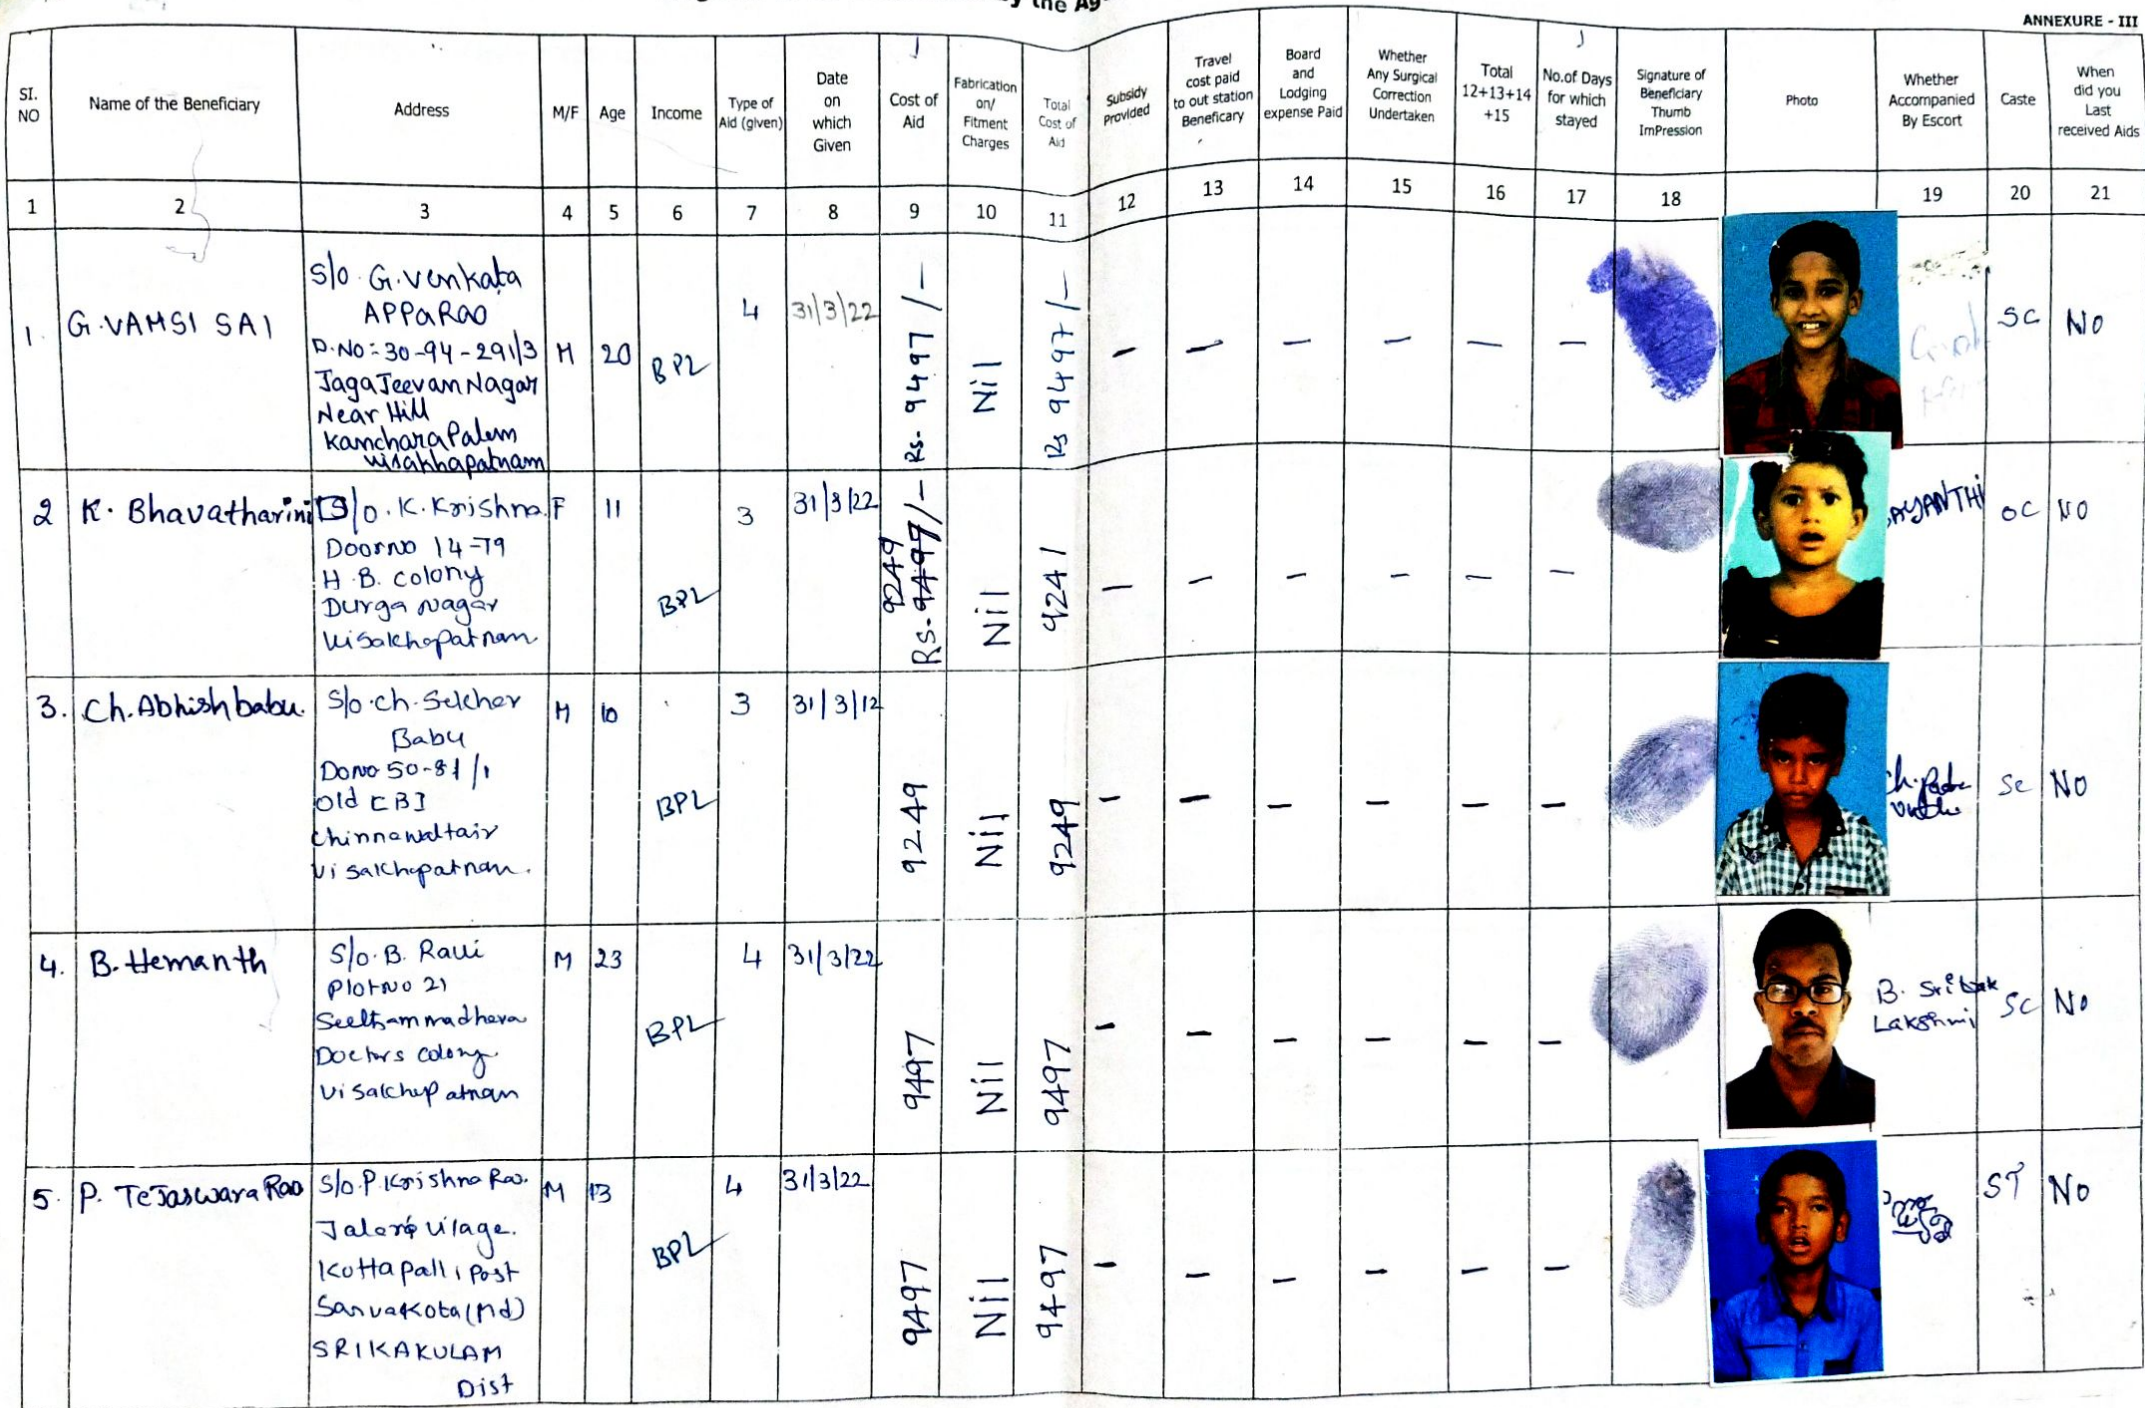 by the Ag
ANNEXURE - III
SI. NO
Name of the Beneficiary
Address
M/F
Age
Income
Type of Aid (given)
Date on which Given
Cost of Aid
Fabrication on/ Fitment Charges
Total Cost of Aid
Subsidy Provided
Travel cost paid to out station Beneficary
Board and Lodging expense Paid
Whether Any Surgical Correction Undertaken
Total 12+13+14 +15
No.of Days for which stayed
Signature of Beneficiary Thumb ImPression
Photo
Whether Accompanied By Escort
Caste
When did you Last received Aids
1 2 3 4 5 6 7 8 9 10 11 12 13 14 15 16 17 18 19 20 21
1. G.VAMSI SAI
S/o. G.Venkata
APPaRao
D.No:30-94-291/3
JagaJeevam Nagar
Near Hill
KancharaPalem
visakhapatnam
M 20 BPL 4 31/3/22 Rs. 9497/- Nil Rs 9497/- - - - - - - SC NO
2 K. Bhavatharini
D/o. K. Krishna
Doorno 14-79
H.B. colony
Durga Nagar
visakhapatnam
F 11 BPL 3 31/3/22 9249 Rs. 9497/- Nil 9241 - - - - - - AYANTHi OC NO
3. Ch. Abhish babu.
S/o. ch. Sekher
Babu
Dono 50-81/1
old CBI
chinnawaltair
visakhapatnam.
M 10 BPL 3 31/3/12 9249 Nil 9249 - - - - - - SC NO
4. B. Hemanth
S/o. B. Ravi
Plot No 21
Seethammadhara
Doctors colony
visakhapatnam
M 23 BPL 4 31/3/22 9497 Nil 9497 - - - - - - B. Lakshmi SC No
5. P. TeJaswara Rao
S/o. P. Krishna Rao.
village.
Kottapalli Post
Saravakota (Md)
SRIKAKULAM
Dist
M 13 BPL 4 31/3/22 9497 Nil 9497 - - - - - - ST No